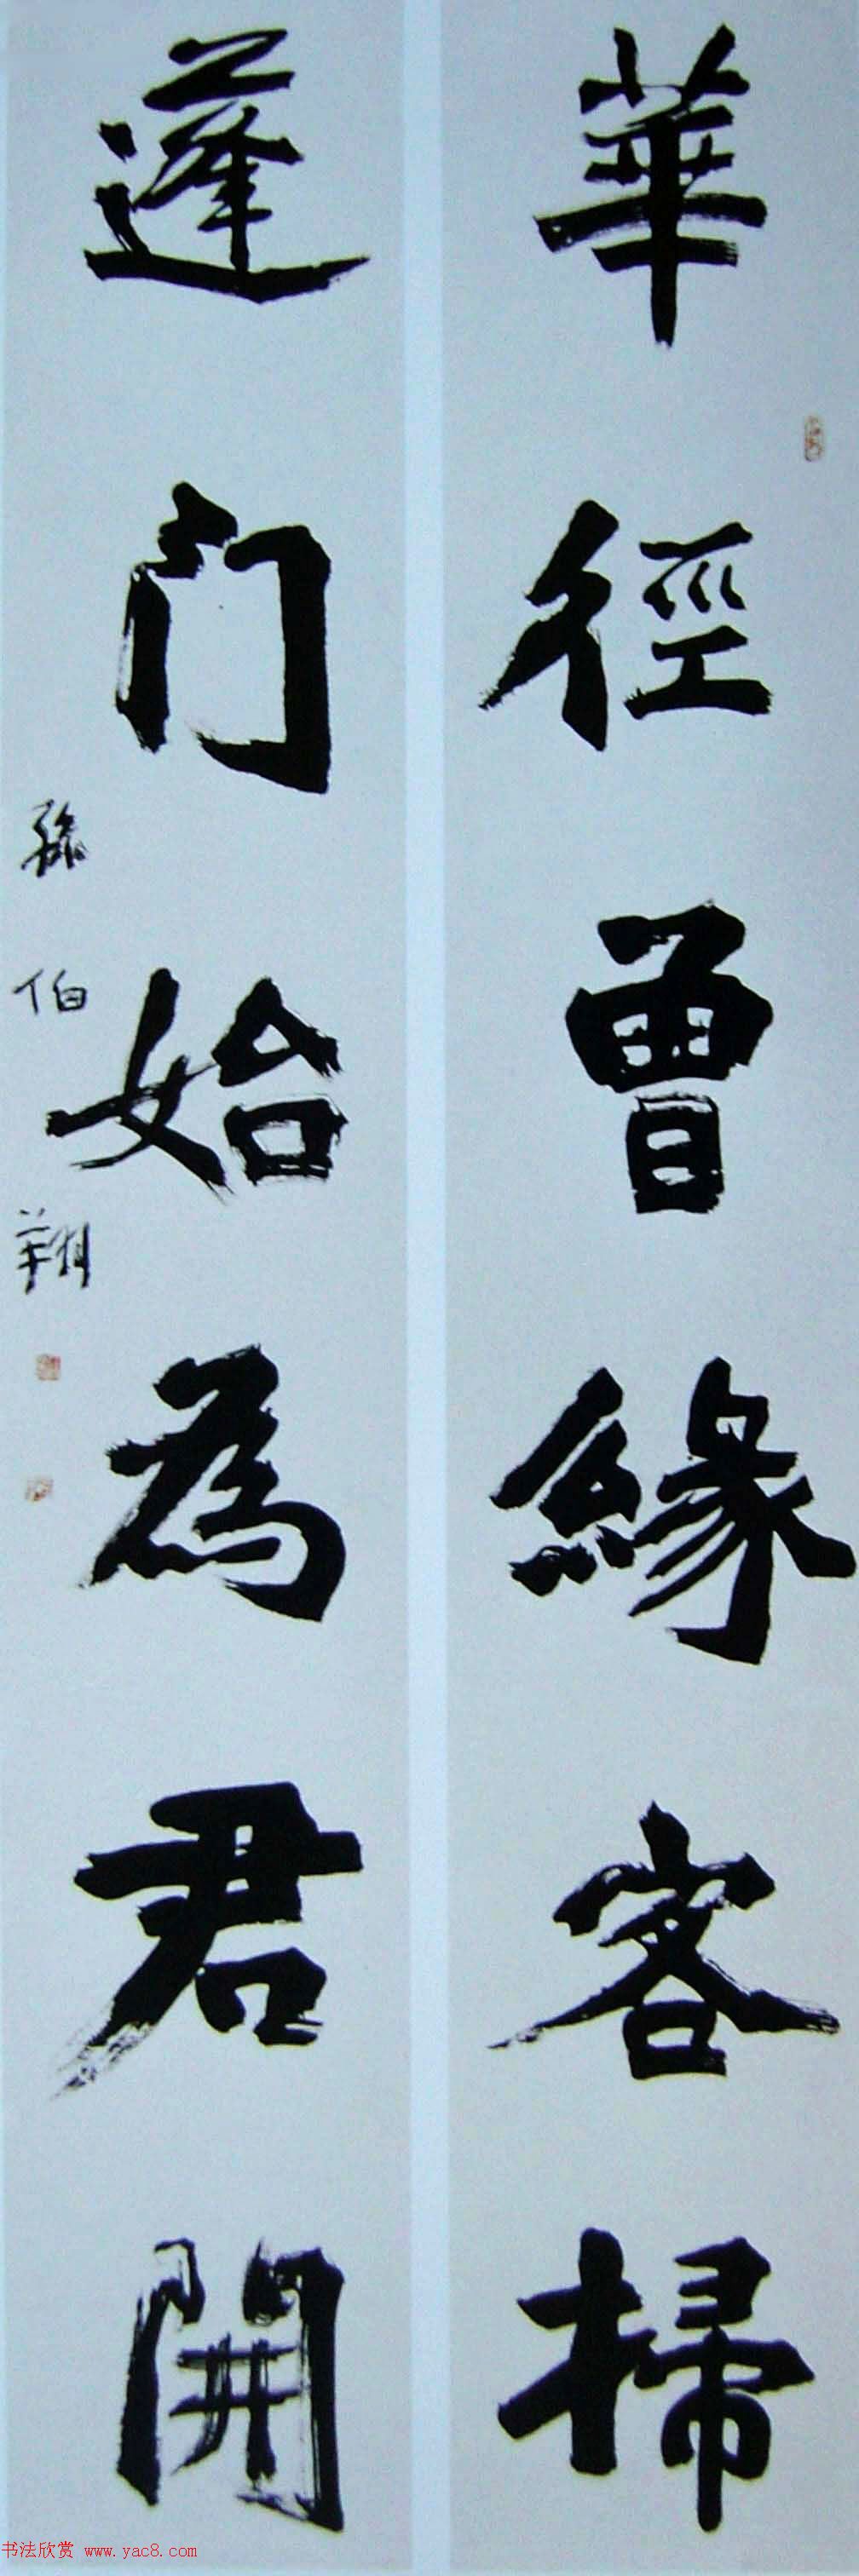 華徑曾緣客掃
蓬门始為君開
孫伯翔
书法欣赏 www.yac8.com